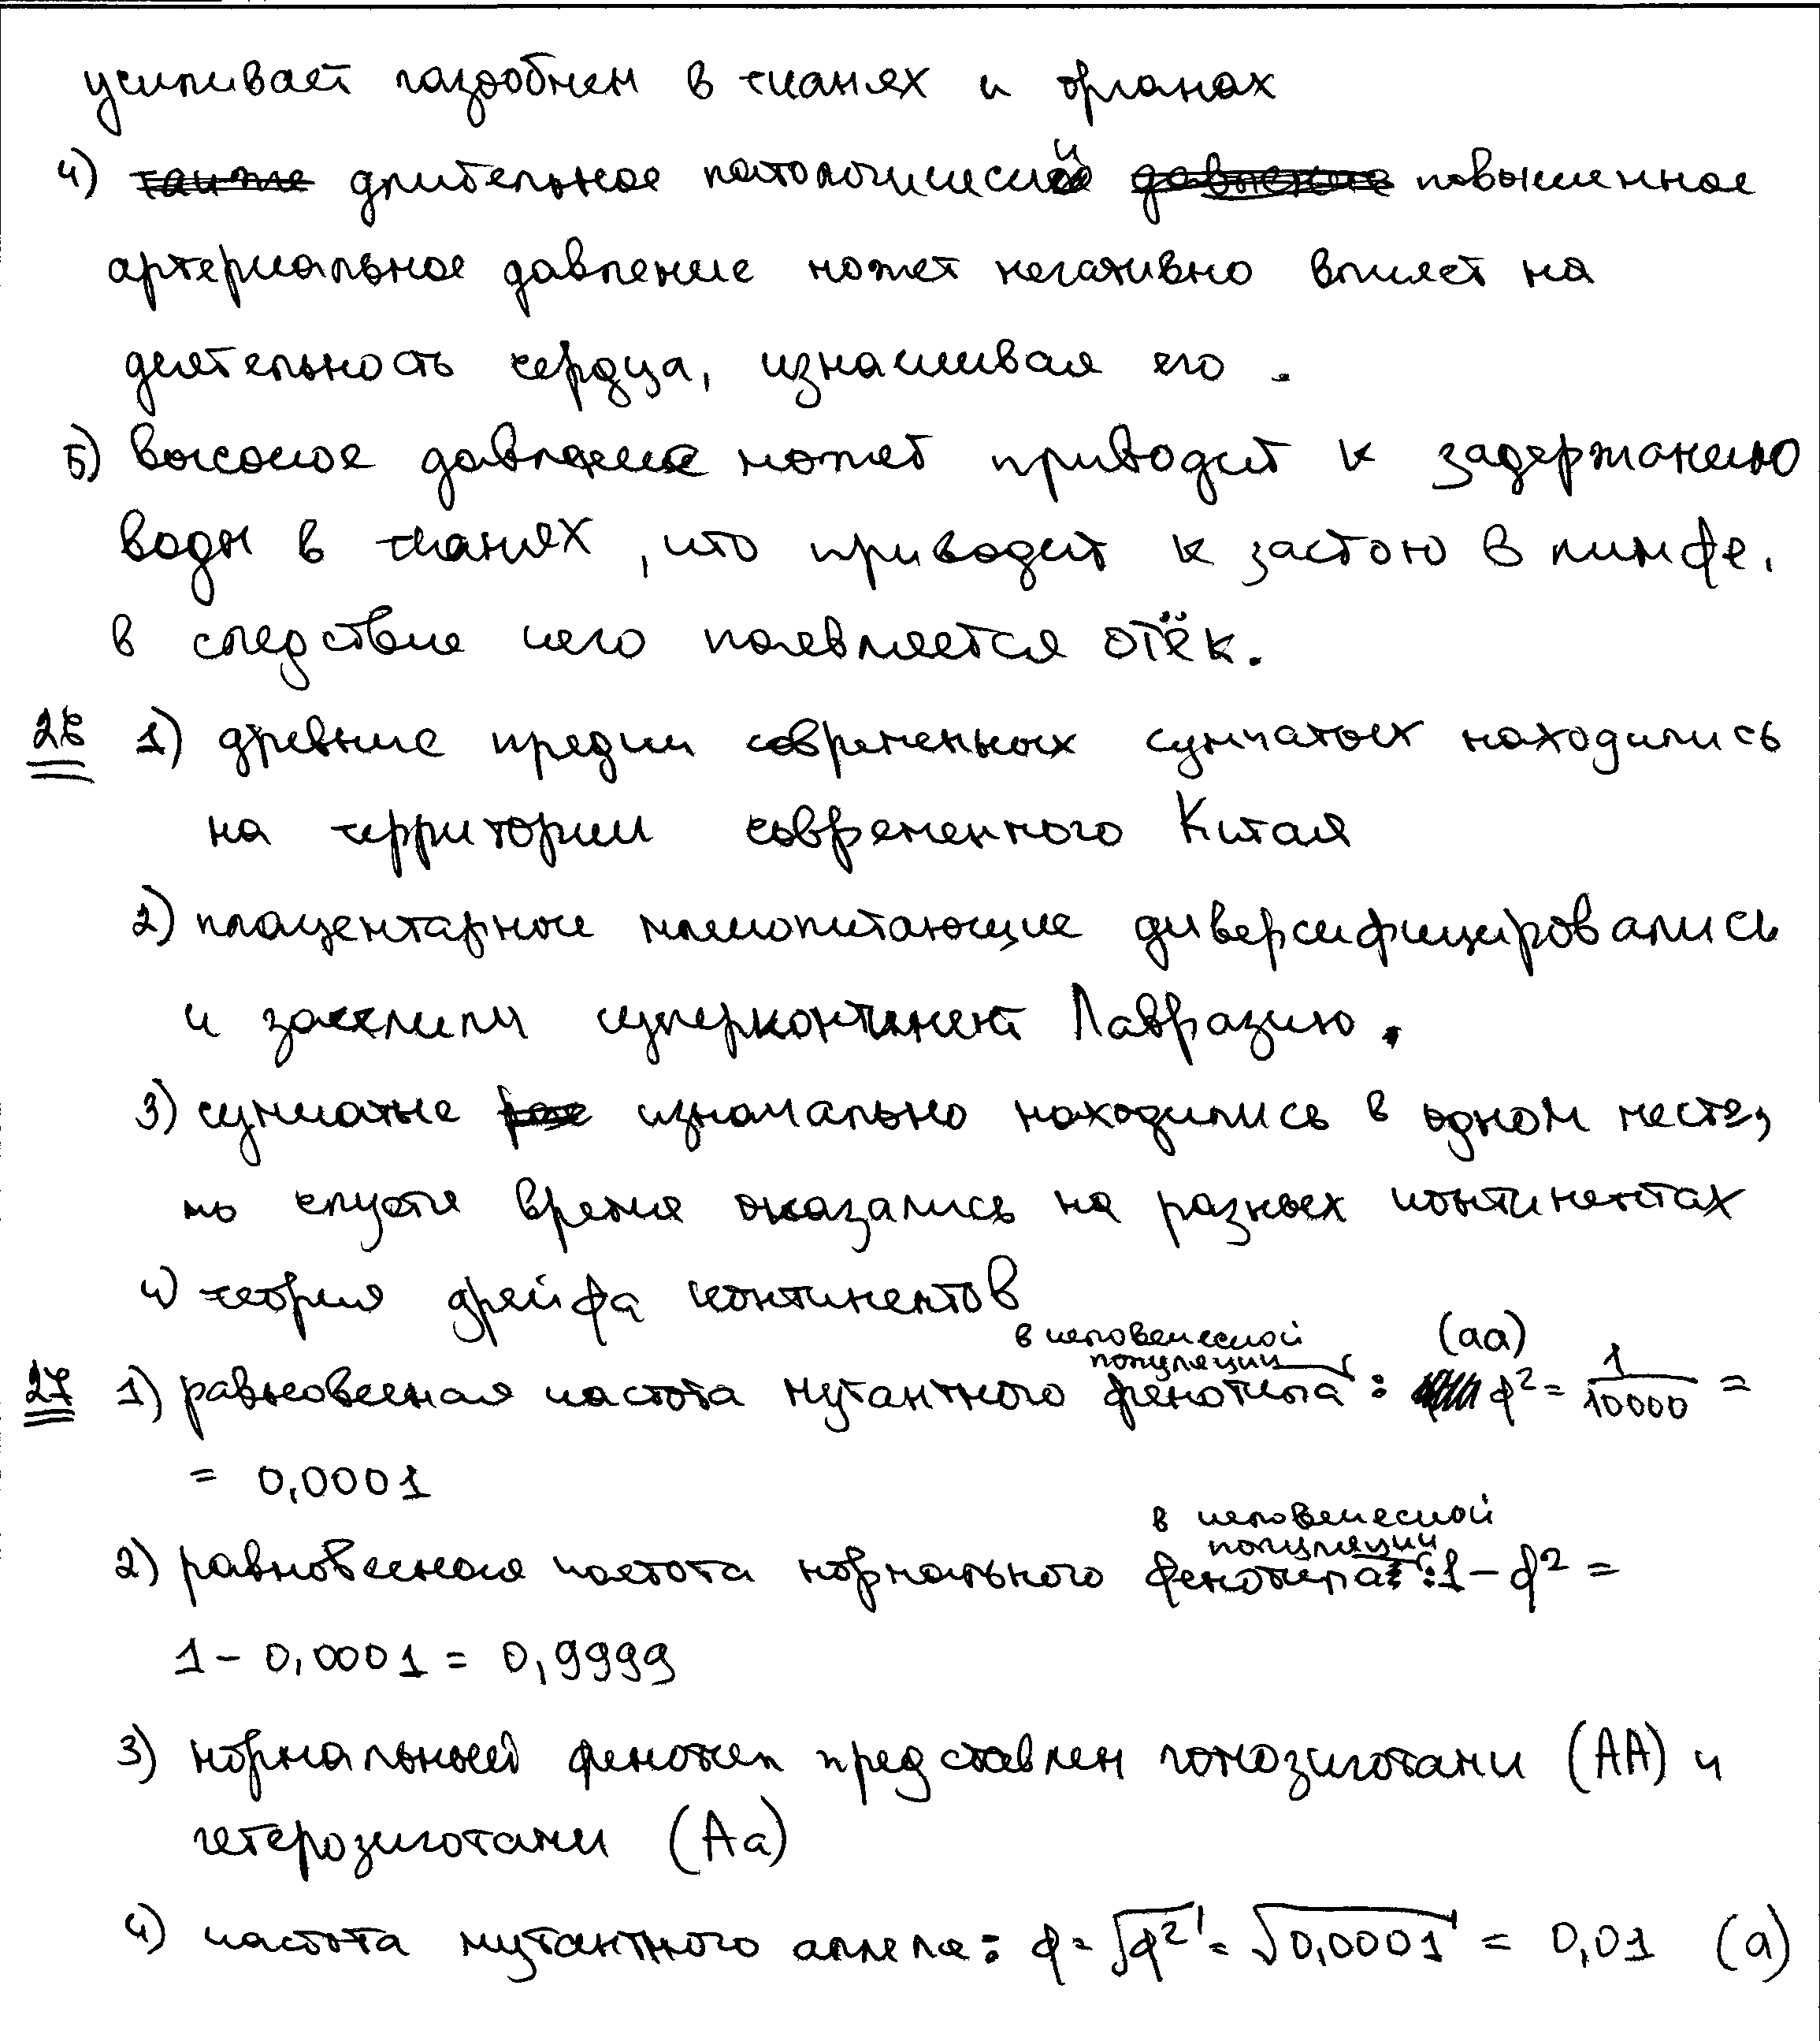 усиливает газообмен в тканях и органах
4) также длительное патологический повышенное
артериальное давление может негативно влияет на
деятельность сердца, изнашивая его.
5) высокое давление может приводит к задержанию
воды в тканях, что приводит к застою в лимфе,
в следствие чего появляется отёк.
26 1) древние предки современных сумчатых находились
на территории современного Китая
2) плацентарные млекопитающие диверсифицировались
и заселили суперконтинент Лавразию.
3) сумчатые изначально находились в одном месте,
но спустя время оказались на разных континентах
4) теория дрейфа континентов
27 1) равновесная частота мутантного в человеческой популяции фенотипа: (aa) q² = 1/10000 =
= 0,0001
2) равновесная частота нормального в человеческой популяции фенотипа: 1 - q² =
1 - 0,0001 = 0,9999
3) нормальный фенотип представлен гомозиготами (AA) и
гетерозиготами (Aa)
4) частота мутантного аллеля: q = √q² = √0,0001 = 0,01 (a)